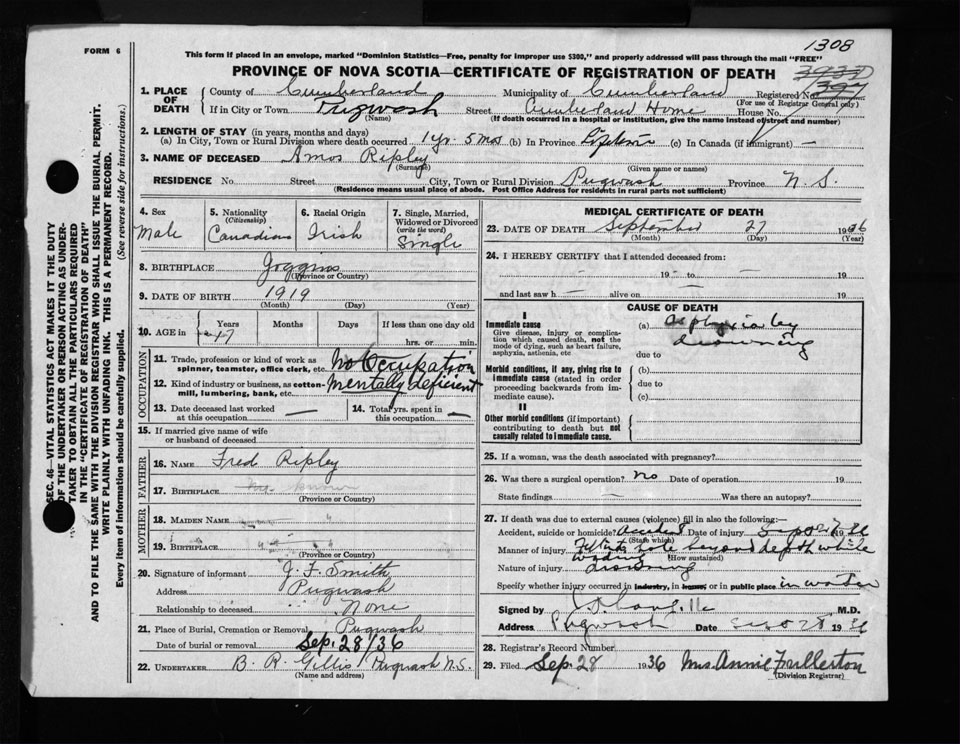 1308
FORM 6
This form if placed in an envelope, marked "Dominion Statistics—Free, penalty for improper use $300," and properly addressed will pass through the mail "FREE"
PROVINCE OF NOVA SCOTIA—CERTIFICATE OF REGISTRATION OF DEATH
1. PLACE OF DEATH
County of Cumberland Municipality of Cumberland Registered No. 397
(For use of Registrar General only)
If in City or Town Pugwash Street Cumberland Home House No.
(Name) (If death occurred in a hospital or institution, give the name instead of street and number)
2. LENGTH OF STAY (in years, months and days)
(a) In City, Town or Rural Division where death occurred 1 yr 5 mos (b) In Province Lifetime (c) In Canada (if immigrant) —
3. NAME OF DECEASED Amos Ripley
(Surname) (Given name or names)
RESIDENCE No. Street City, Town or Rural Division Pugwash Province N. S.
(Residence means usual place of abode. Post Office Address for residents in rural parts not sufficient)
4. Sex
Male
5. Nationality (Citizenship)
Canadian
6. Racial Origin
Irish
7. Single, Married, Widowed or Divorced (write the word)
Single
8. BIRTHPLACE Joggins
(Province or Country)
9. DATE OF BIRTH 1919
(Month) (Day) (Year)
10. AGE in Years Months Days If less than one day old
17 hrs. or min.
OCCUPATION
11. Trade, profession or kind of work as spinner, teamster, office clerk, etc. No Occupation
12. Kind of industry or business, as cotton-mill, lumbering, bank, etc. Mentally deficient
13. Date deceased last worked at this occupation —
14. Total yrs. spent in this occupation —
15. If married give name of wife or husband of deceased
FATHER
16. NAME Fred Ripley
17. BIRTHPLACE
(Province or Country)
MOTHER
18. MAIDEN NAME
19. BIRTHPLACE
(Province or Country)
20. Signature of informant J. F. Smith
Address Pugwash
Relationship to deceased None
21. Place of Burial, Cremation or Removal Pugwash
Date of burial or removal Sep. 28/36
22. UNDERTAKER B. R. Gillis Pugwash N.S.
(Name and address)
MEDICAL CERTIFICATE OF DEATH
23. DATE OF DEATH September 27 1936
(Month) (Day) (Year)
24. I HEREBY CERTIFY that I attended deceased from:
— 19 — to — 19
and last saw h — alive on — 19
CAUSE OF DEATH
I
Immediate cause
Give disease, injury or complication which caused death, not the mode of dying, such as heart failure, asphyxia, asthenia, etc
(a) asphyxia by drowning
due to
Morbid conditions, if any, giving rise to immediate cause (stated in order proceeding backwards from immediate cause).
(b)
due to
(c)
II
Other morbid conditions (if important) contributing to death but not causally related to immediate cause.
25. If a woman, was the death associated with pregnancy?
26. Was there a surgical operation? No Date of operation 19
State findings — Was there an autopsy?
27. If death was due to external causes (violence) fill in also the following:—
Accident, suicide or homicide? accident Date of injury
(State which)
Manner of injury Fell into hole beyond depth while wading
(How sustained)
Nature of injury drowning
Specify whether injury occurred in industry, in home, or in public place in water
Signed by M.D.
Address Pugwash Date Sept 28 1936
28. Registrar's Record Number
29. Filed Sep. 28 1936 Mrs. Annie Fullerton
(Division Registrar)
SEC. 46—VITAL STATISTICS ACT MAKES IT THE DUTY
OF THE UNDERTAKER OR PERSON ACTING AS UNDER-
TAKER TO OBTAIN ALL THE PARTICULARS REQUIRED
IN THE "CERTIFICATE OF REGISTRATION OF DEATH"
AND TO FILE THE SAME WITH THE DIVISION REGISTRAR WHO SHALL ISSUE THE BURIAL PERMIT.
WRITE PLAINLY WITH UNFADING INK. THIS IS A PERMANENT RECORD.
Every item of information should be carefully supplied. (See reverse side for instructions.)